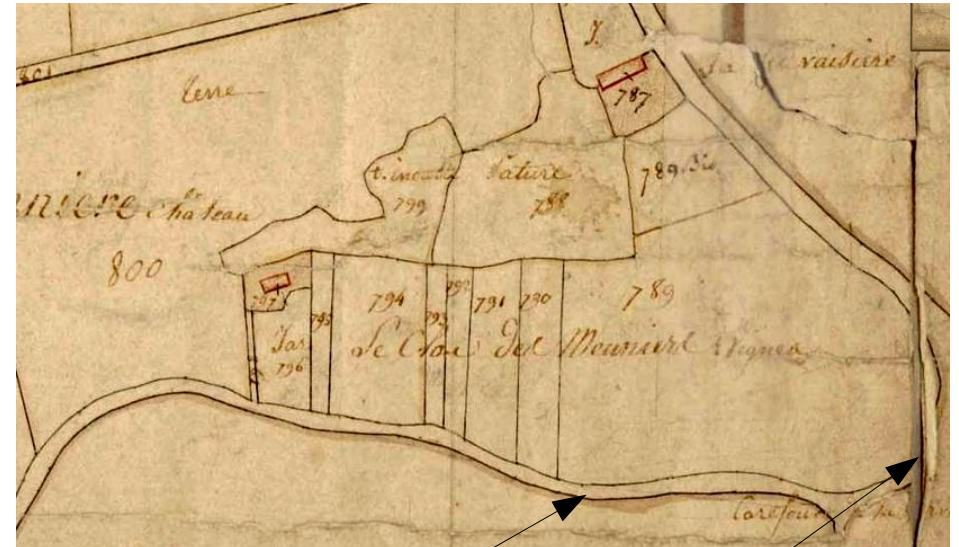 J.
801
terre
787
vaisiere
t. inculte
799
Pature
788
789 Bis
Château
800
797
795
794
793
792
791
790
789
Jar
796
Le Clou des Meuniers Vignes
Carefour